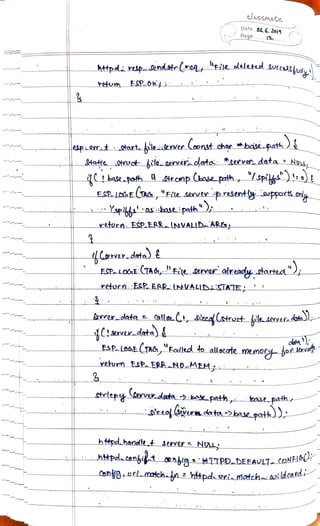 classmate
Date 26.6.2019
Page 12
httpd_resp_sendstr(req, "File deleted successfully");
return ESP_OK;
}
esp_err_t start_file_server (const char *base_path) {
static struct file_server_data *server_data = NULL;
if (!base_path || strcmp (base_path, "/spiffs") != 0) {
ESP_LOGE (TAG, "File server presently supports only
'/spiffs' as base path");
return ESP_ERR_INVALID_ARG;
}
if (server_data) {
ESP_LOGE (TAG, "File server already started");
return ESP_ERR_INVALID_STATE;
}
server_data = calloc (1, sizeof(struct file_server_data));
if (!server_data) {
ESP_LOGE (TAG, "Failed to allocate memory for server data");
return ESP_ERR_NO_MEM;
}
strlcpy (server_data -> base_path, base_path,
sizeof (server_data -> base_path));
httpd_handle_t server = NULL;
httpd_config_t config = HTTPD_DEFAULT_CONFIG();
config.uri_match_fn = httpd_uri_match_wildcard;